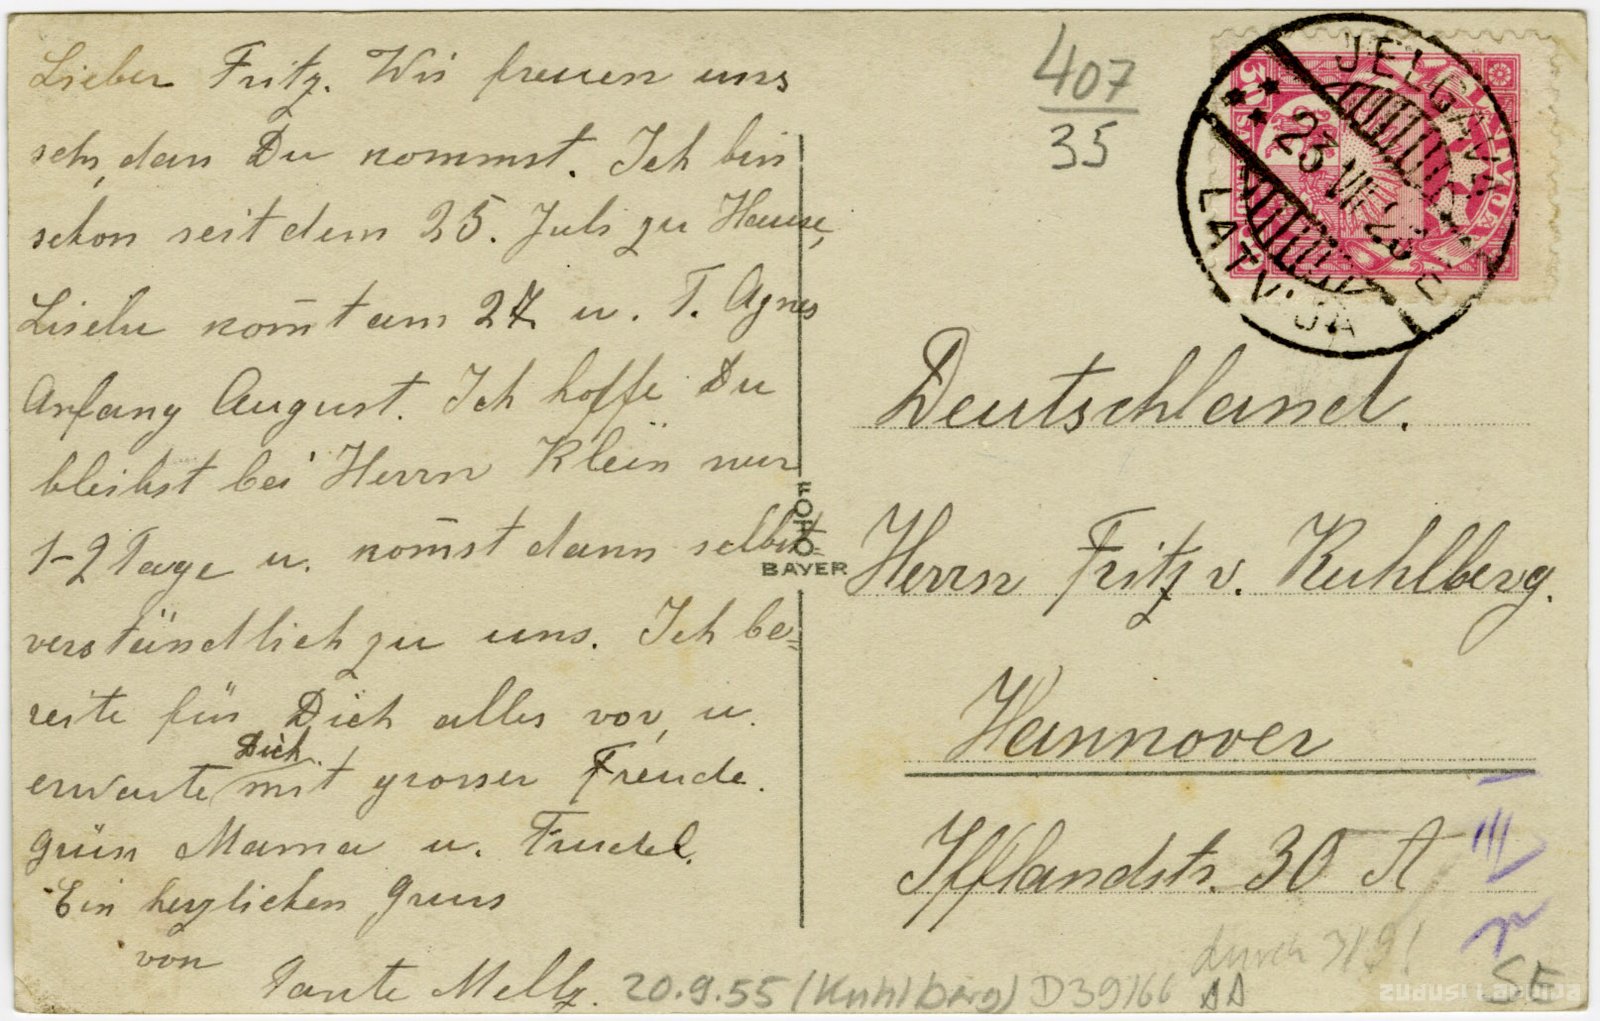 Lieber Fritz. Wir freuen uns
sehr, dass Du kommst. Ich bin
schon seit dem 25. Juli zu Hause,
Liselu kom̄t am 27 u. T. Agnes
Anfang August. Ich hoffe Du
bleibst bei Herrn Klein nur
1-2 Tage u. kom̄st dann selbst=
verständlich zu uns. Ich be=
reite für Dich alles vor, u.
Dich
erwarte mit grosser Freude.
Grüss Mama u. Trudel.
Ein herzlichen Gruss
von
Tante Melly.
FOTO
BAYER
407
35
30
JELGAVA
23 VII 28
LATVIJA
Deutschland.
Herrn Fritz v. Kuhlberg.
Hannover
Ifflandstr. 30 A
III
durch 3/9/
20.9.55 (Kuhlberg) D39166
SE
zudusi Latvija